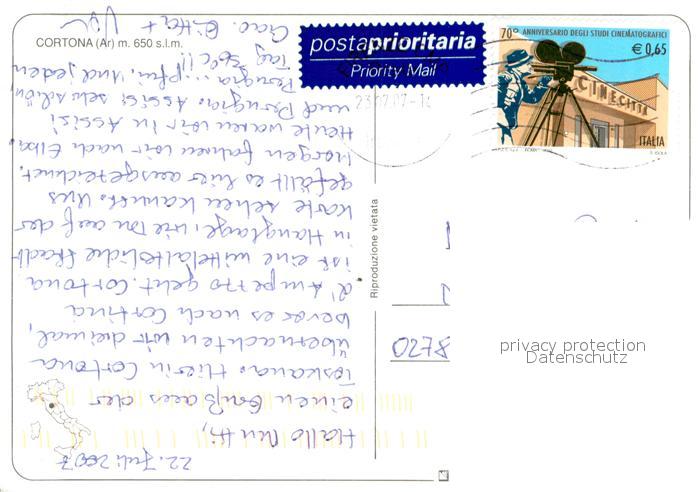 CORTONA (Ar) m. 650 s.l.m.
postaprioritaria
Priority Mail
70° ANNIVERSARIO DEGLI STUDI CINEMATOGRAFICI
€ 0,65
CINECITTÀ
ITALIA
Riproduzione vietata
22. Juli 2007
Hallo Mutti,
einen Gruß aus der
Toskana. Hier in Cortona
übernachten wir dreimal,
bevor es nach Cortina
d'Ampezzo geht. Cortona
ist eine mittelalterliche Stadt
in Hanglage, wie Du auf der
Karte sehen kannst. Uns
gefällt es hier ausgezeichnet.
Morgen fahren wir nach Elba.
Heute waren wir in Assisi
und Perugia. Assisi sehr schön,
Perugia ... pfui. Und jeden
Tag 36°C!!
Ciao.
0278
privacy protection
Datenschutz